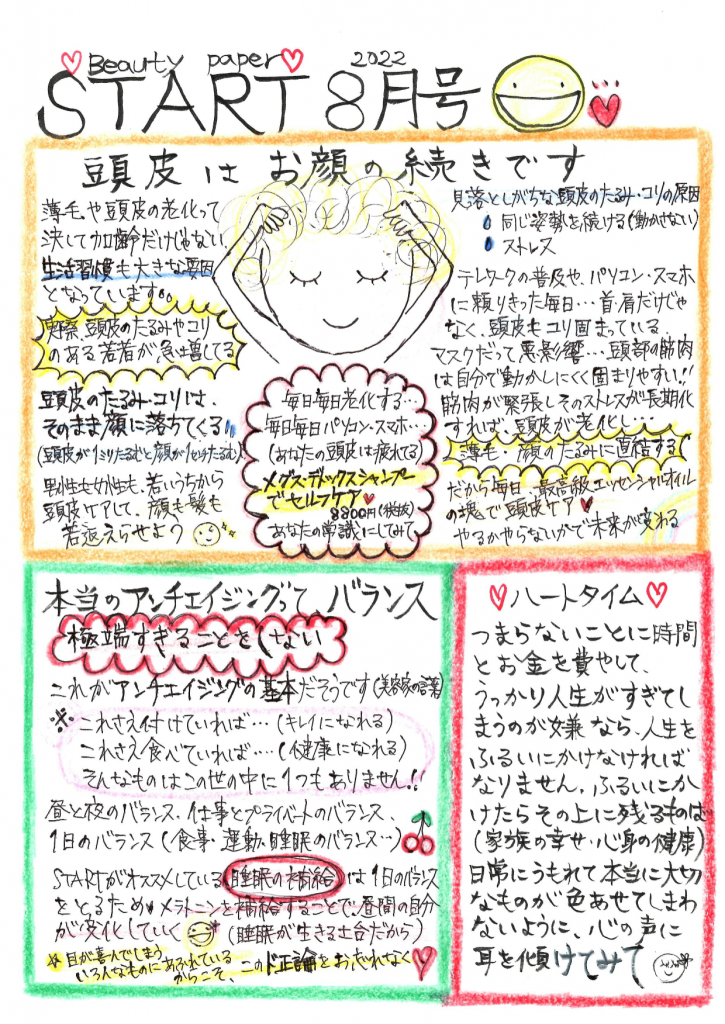 Beauty paper 2022
START 8月号
頭皮はお顔の続きです
薄毛や頭皮の老化って
決して加齢だけじゃない
生活習慣も大きな要因
となっています。
実際、頭皮のたるみやコリ
のある若者が急増してる
頭皮のたるみ・コリは、
そのまま顔に落ちてくる
(頭皮が1ミリたるむと顔が1センチたるむ)
男性も女性も、若いうちから
頭皮ケアして、顔も髪も
若返えらせよう
毎日毎日老化する…
毎日毎日パソコン・スマホ…
(あなたの頭皮は疲れてる)
メグス・デトックスシャンプー
でセルフケア
8800円(税抜)
あなたの常識にしてみて
見落としがちな頭皮のたるみ・コリの原因
同じ姿勢を続ける(動かさない)
ストレス
テレワークの普及や、パソコン・スマホ
に頼りきった毎日…首・肩だけじゃ
なく、頭皮もコリ固まっている
マスクだって悪影響…頭部の筋肉
は自分で動かしにくく固まりやすい!!
筋肉が緊張しそのストレスが長期化
すれば、頭皮が老化し…
薄毛・顔のたるみに直結する
だから毎日、最高級エッセンシャルオイル
の塊で頭皮ケア
やるかやらないかで未来が変わる
本当のアンチエイジングって、バランス
極端すぎることをしない
これがアンチエイジングの基本だそうです(美容家の言葉)
※ これさえ付けていれば…(キレイになれる)
これさえ食べていれば…(健康になれる)
そんなものはこの世の中に1つもありません!!
昼と夜のバランス、仕事とプライベートのバランス、
1日のバランス(食事・運動・睡眠のバランス…)
STARTがオススメしている睡眠の補給は1日のバランス
をとるため メラトニンを補給することで、昼間の自分
が変化していく (睡眠が生きる土台だから)
☆目が喜んでしまう
いろんなものにあふれている
からこそ、このド正論をお忘れなく
ハートタイム
つまらないことに時間
とお金を費やして、
うっかり人生がすぎてし
まうのが嫌なら、人生を
ふるいにかけなければ
なりません。ふるいにか
けたらその上に残るものは
(家族の幸せ・心身の健康)
日常にうもれて本当に大切
なものが色あせてしまわ
ないように、心の声に
耳を傾けてみて